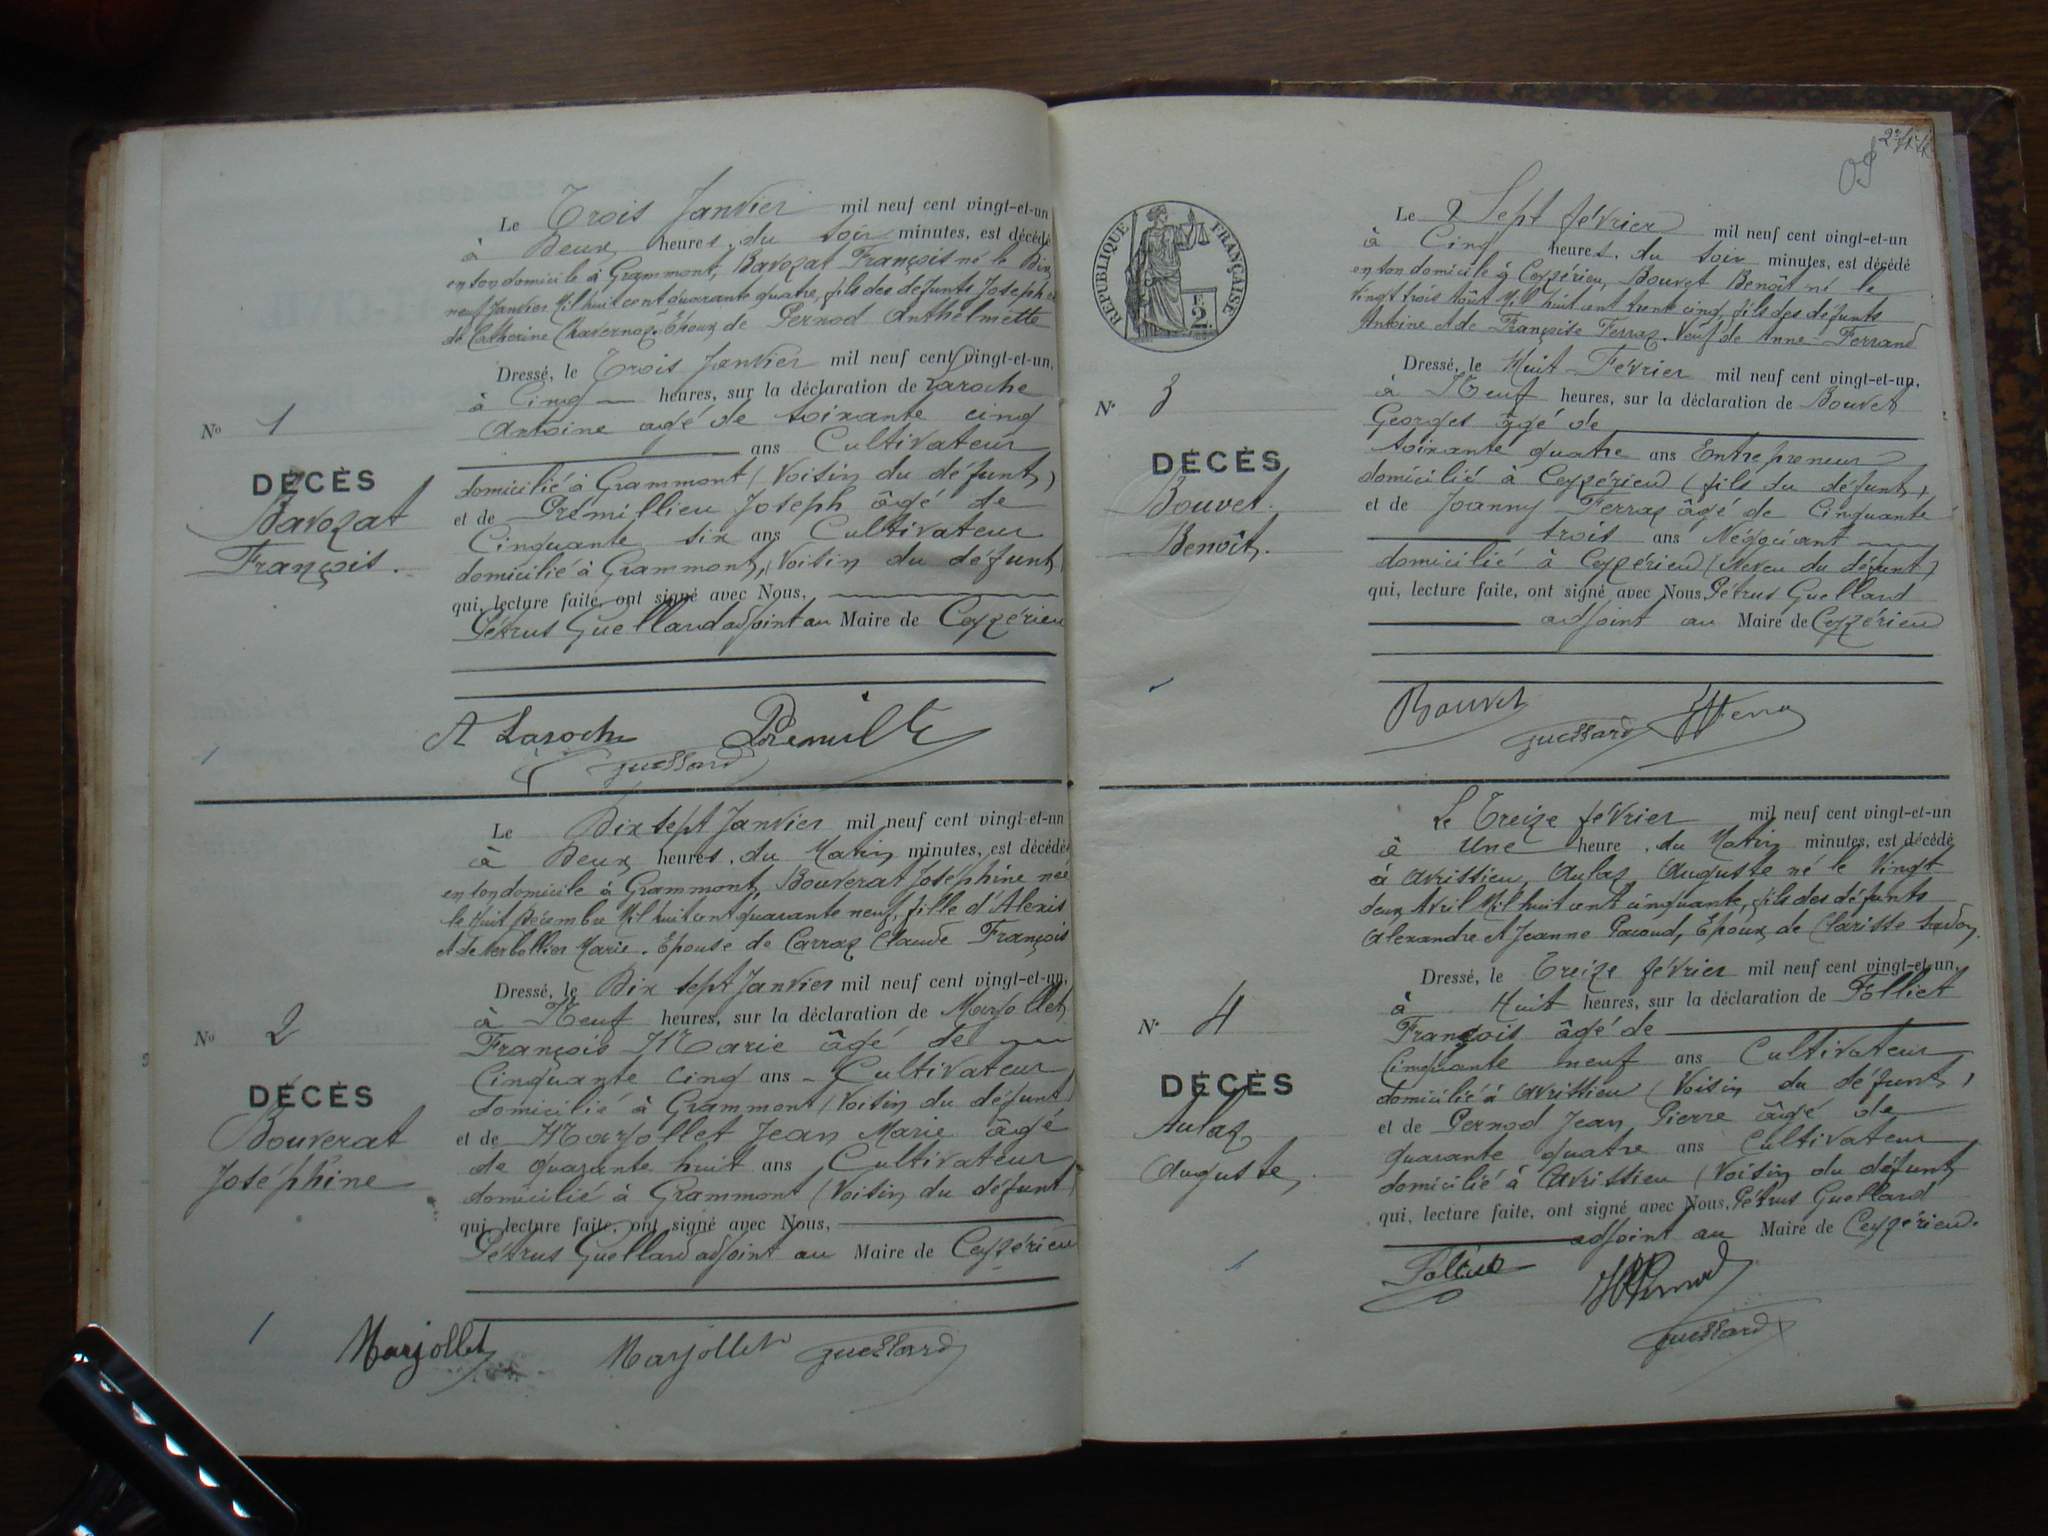 Le Trois Janvier mil neuf cent vingt-et-un
à Deux heures du soir minutes, est décédé
en son domicile à Grammont, Bavozat François né le Dix
neuf Janvier Mil huit cent quarante quatre, fils des défunts Joseph et
de Catherine Chavernoz. Epoux de Pernod Anthelmette
Dressé, le Trois Janvier mil neuf cent vingt-et-un,
à Cinq heures, sur la déclaration de Laroche
Antoine âgé de soixante cinq
ans Cultivateur
domicilié à Grammont (Voisin du défunt)
et de Prémillieu Joseph âgé de
Cinquante six ans Cultivateur
domicilié à Grammont, (Voisin du défunt)
qui, lecture faite, ont signé avec Nous,
Pétrus Guelland adjoint au Maire de Ceyzérieu
No 1
DÉCÈS
Bavozat
François.
A Laroche
Le Dix sept Janvier mil neuf cent vingt-et-un
à Deux heures du Matin minutes, est décédé
en son domicile à Grammont, Bouverat Joséphine née
le huit Décembre Mil huit cent quarante neuf, fille d'Alexis
et de Marie. Epouse de Carraz Claude François
Dressé, le Dix sept Janvier mil neuf cent vingt-et-un,
à Neuf heures, sur la déclaration de Marjollet
François Marie âgé de
Cinquante cinq ans Cultivateur
domicilié à Grammont (Voisin du défunt)
et de Marjollet Jean Marie âgé
de quarante huit ans Cultivateur
domicilié à Grammont (Voisin du défunt)
qui, lecture faite, ont signé avec Nous,
Pétrus Guelland adjoint au Maire de Ceyzérieu
No 2
DÉCÈS
Bouverat
Joséphine
Marjollet Marjollet
RÉPUBLIQUE FRANÇAISE
2
Le Sept février mil neuf cent vingt-et-un
à Cinq heures du soir minutes, est décédé
en son domicile à Ceyzérieu, Bouvet Benoît né le
vingt trois Août Mil huit cent trente cinq, fils des défunts
Antoine et de Françoise Ferraz. Veuf de Anne Ferrand
Dressé, le Huit Février mil neuf cent vingt-et-un,
à Neuf heures, sur la déclaration de Bouvet
Georges âgé de
soixante quatre ans Entrepreneur
domicilié à Ceyzérieu (fils du défunt)
et de Joanny Ferraz âgé de Cinquante
trois ans Négociant
domicilié à Ceyzérieu (Neveu du défunt)
qui, lecture faite, ont signé avec Nous, Pétrus Guelland
adjoint au Maire de Ceyzérieu
No 3
DÉCÈS
Bouvet
Benoît.
Bouvet
Le Treize février mil neuf cent vingt-et-un
à Une heure du Matin minutes, est décédé
à Avrissieu, Aulaz Auguste né le Vingt
deux Avril Mil huit cent cinquante, fils des défunts
Alexandre et Jeanne Pacoud, Epoux de Clarisse
Dressé, le Treize février mil neuf cent vingt-et-un,
à Huit heures, sur la déclaration de Folliet
François âgé de
Cinquante neuf ans Cultivateur
domicilié à Avrissieu (Voisin du défunt)
et de Pernod Jean Pierre âgé de
quarante quatre ans Cultivateur
domicilié à Avrissieu (Voisin du défunt)
qui, lecture faite, ont signé avec Nous, Pétrus Guelland
adjoint au Maire de Ceyzérieu.
No 4
DÉCÈS
Aulaz
Auguste